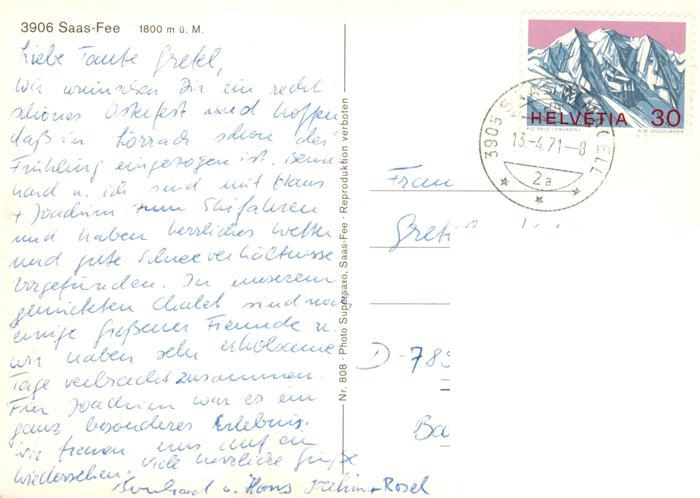 3906 Saas-Fee 1800 m ü. M.
Liebe Tante Gretel,
Wir wünschen Dir ein recht
schönes Osterfest und hoffen,
daß in Lörrach schon der
Frühling eingezogen ist. Bern-
hard u. ich sind mit Hans
+ Joachim zum Skifahren
und haben herrliches Wetter
und gute Schneeverhältnisse
vorgefunden. In unserem
gemieteten Chalet sind noch
einige Freunde u.
wir haben sehr erholsame
Tage verbracht zusammen.
Für Joachim war es ein
ganz besonderes Erlebnis.
Wir freuen uns auf ein
Wiedersehen. Viele herzliche Grüße
Bernhard u. Hans + Rosel
Nr. 808 · Photo Supersaxo, Saas-Fee · Reproduktion verboten
HELVETIA 30
PIZ PALÜ (ENGADIN) A.W. DIGGELMANN
3906 SAAS-FEE
13-4.71-8
2a
Frau
D-785